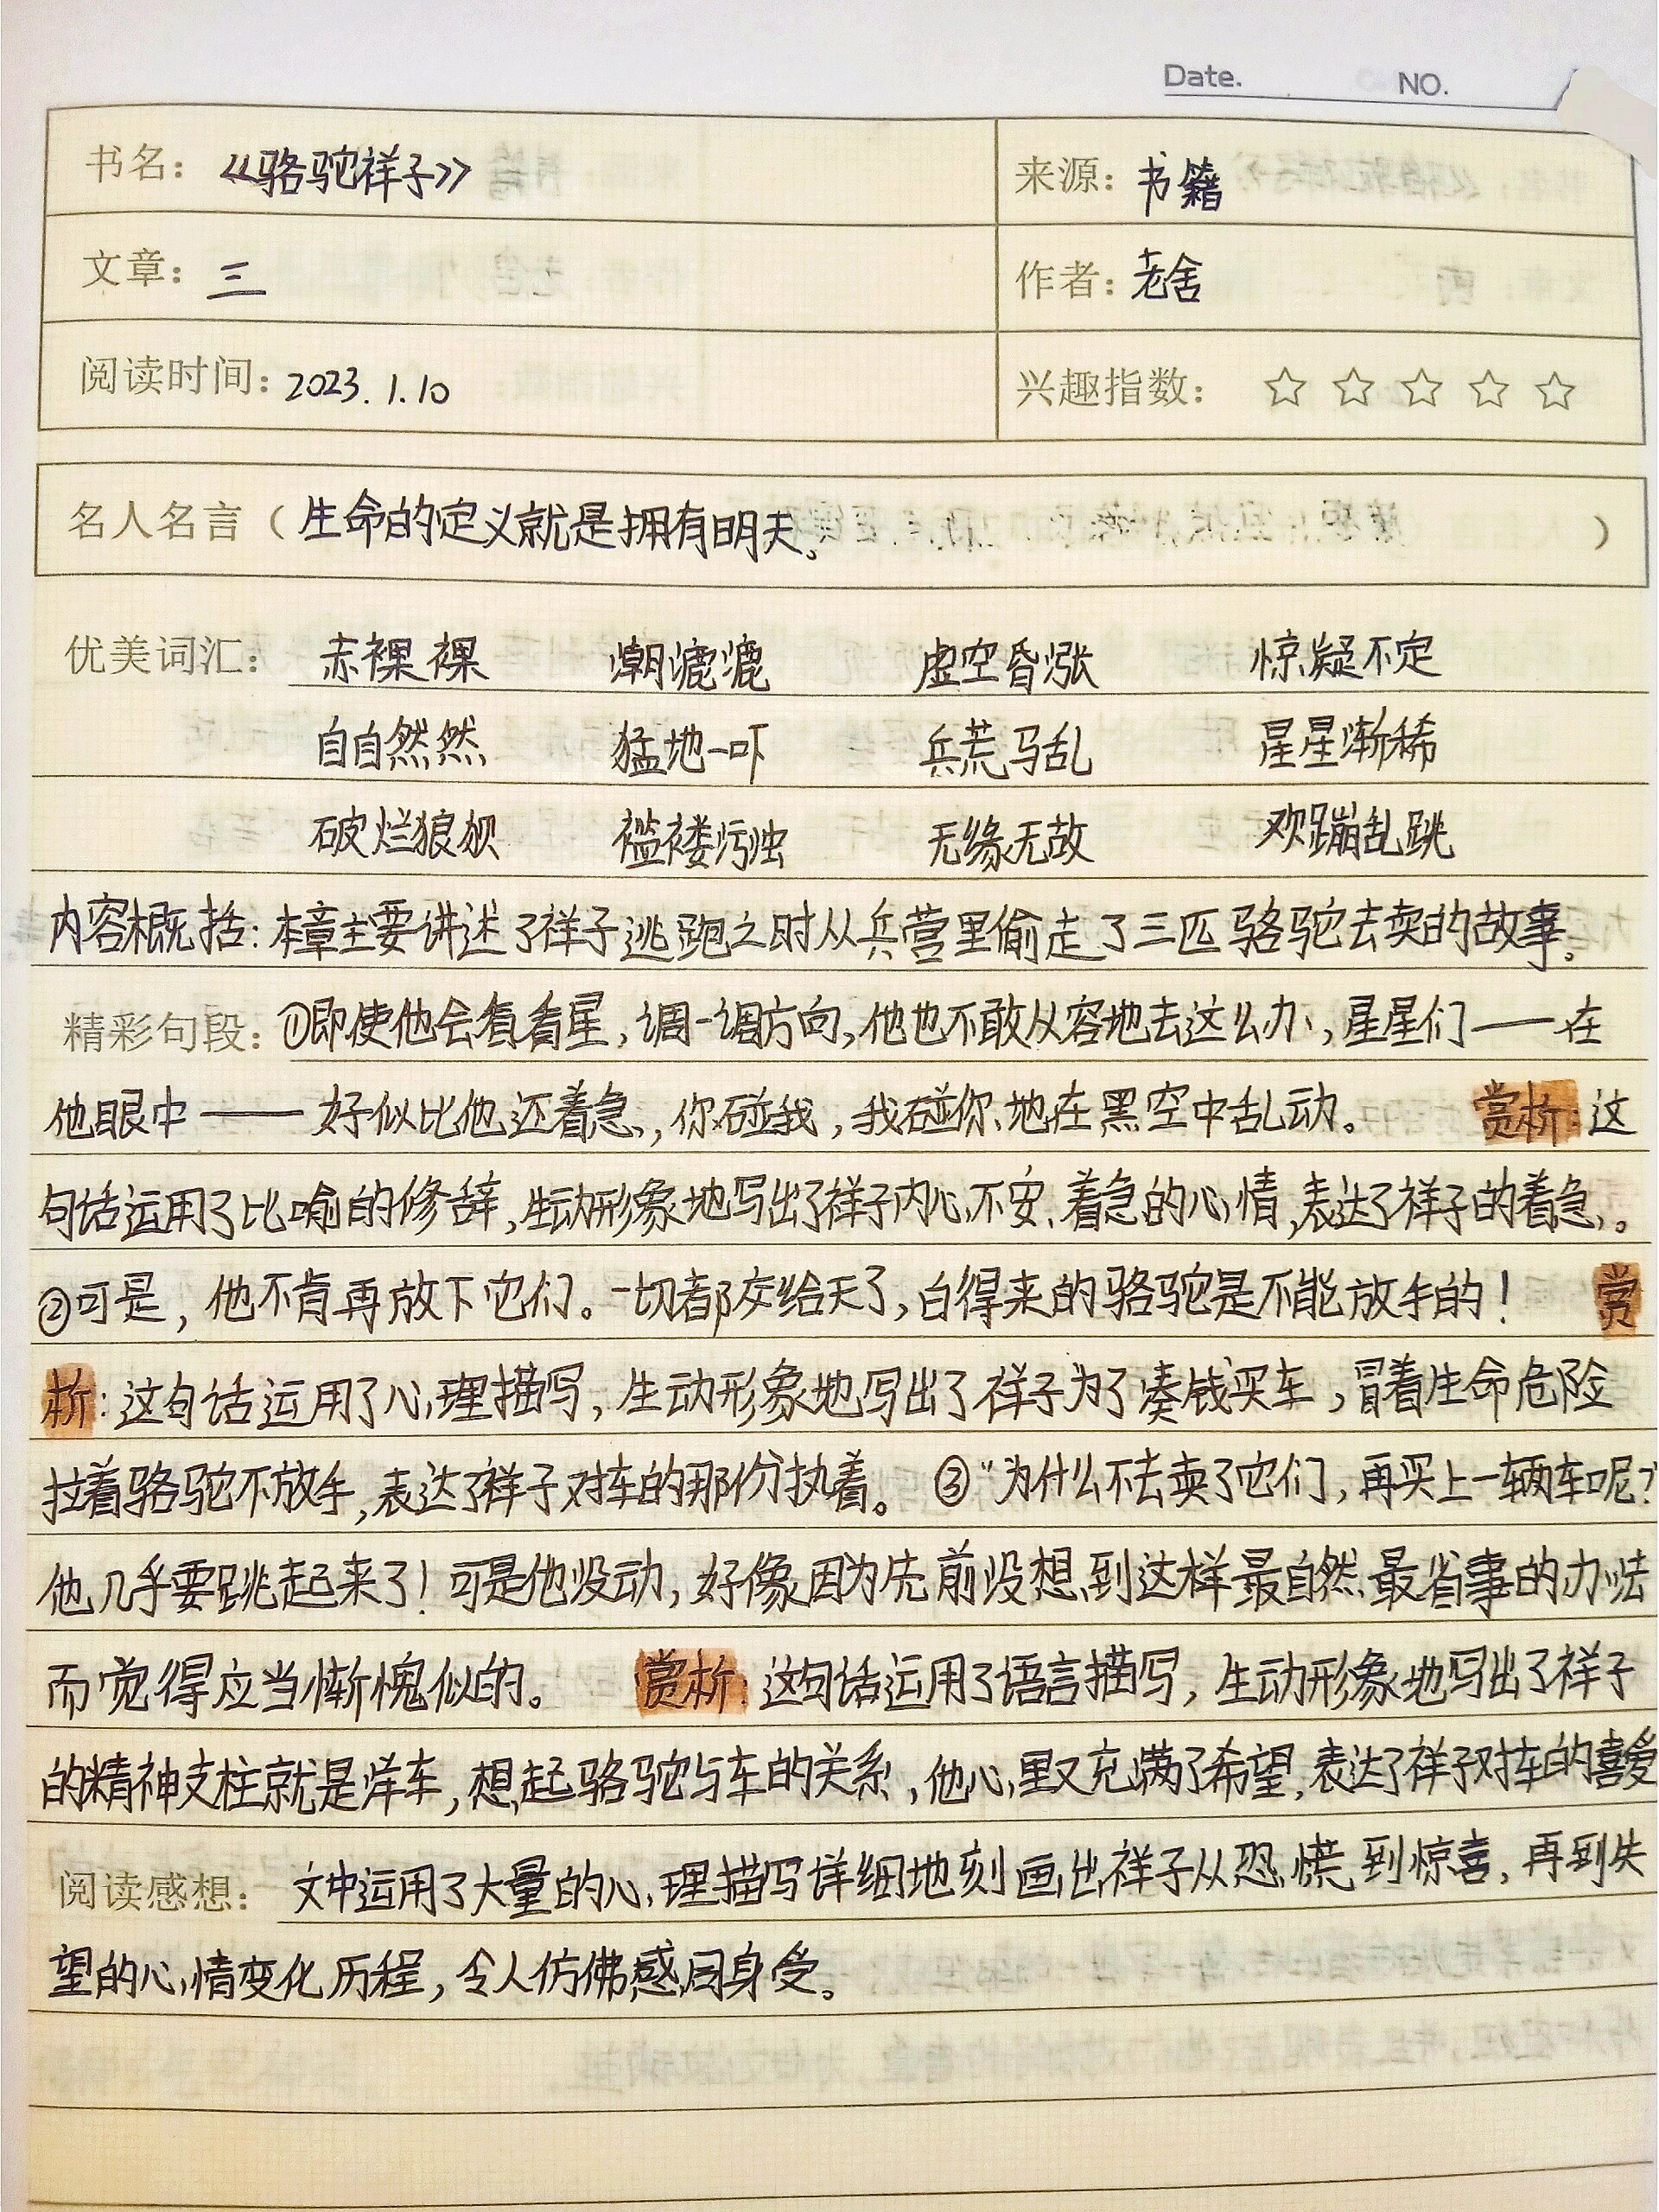 Date. NO.
书名：《骆驼祥子》 来源：书籍
文章：三 作者：老舍
阅读时间：2023.1.10 兴趣指数：☆☆☆☆☆
名人名言（生命的定义就是拥有明天。）
优美词汇： 赤裸裸 潮漉漉 虚空昏涨 惊疑不定
自自然然 猛地一吓 兵荒马乱 星星渐稀
破烂狼狈 褴褛污浊 无缘无故 欢蹦乱跳
内容概括：本章主要讲述了祥子逃跑之时从兵营里偷走了三匹骆驼去卖的故事。
精彩句段：①即使他会看看星，调一调方向，他也不敢从容地去这么办，星星们——在
他眼中——好似比他还着急，你碰我，我碰你地在黑空中乱动。 赏析：这
句话运用了比喻的修辞，生动形象地写出了祥子内心不安、着急的心情，表达了祥子的着急。
②可是，他不肯再放下它们。一切都交给天了，白得来的骆驼是不能放手的！ 赏
析：这句话运用了心理描写，生动形象地写出了祥子为了凑钱买车，冒着生命危险
拉着骆驼不放手，表达了祥子对车的那份执着。 ③“为什么不去卖了它们，再买上一辆车呢？”
他几乎要跳起来了！可是他没动，好像因为先前没想到这样最自然最省事的办法
而觉得应当惭愧似的。 赏析：这句话运用了语言描写，生动形象地写出了祥子
的精神支柱就是洋车，想起骆驼与车的关系，他心里又充满了希望，表达了祥子对车的喜爱
阅读感想： 文中运用了大量的心理描写详细地刻画出祥子从恐慌到惊喜，再到失
望的心情变化历程，令人仿佛感同身受。